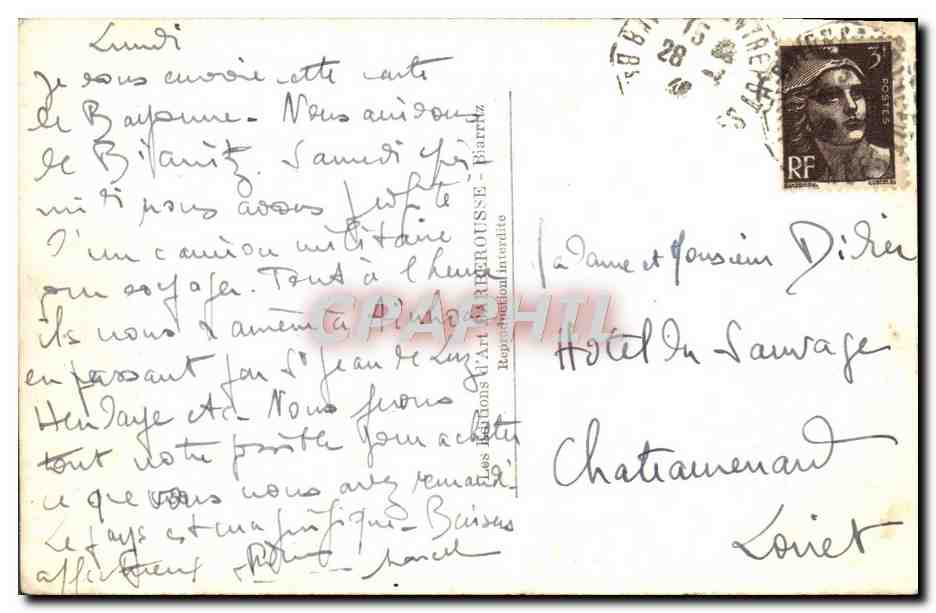 Lundi
Je vous envoie cette carte
de Bayonne. Nous arrivons
de Biarritz. Samedi après
midi nous avons profité
d'un camion militaire
pour voyager. Tout à l'heure
ils nous ramènent à
en passant par St Jean de Luz
Hendaye etc. Nous ferons
tout notre possible pour acheter
ce que vous nous avez demandé.
Le pays est magnifique. Baisers
affectueux Marcel
Les Editions d'Art BARBEROUSSE - Biarritz
Reproduction interdite
CPAPHIL
3F
POSTES
RF
28
Madame et Monsieur Didier
Hôtel du Sauvage
Chateaurenard
Loiret